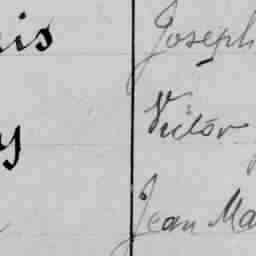 is Joseph
Victor
y
Jean Ma